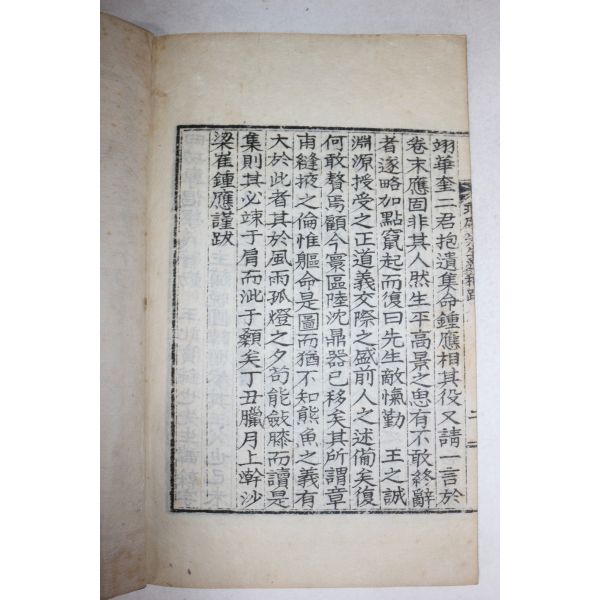 翊華奎二君抱遺集命鍾應相其役又請一言於
卷末應固非其人然生平高景之思有不敢終辭
者遂略加點竄起而復曰先生敵愾勤　王之誠
淵源授受之正道義交際之盛前人之述備矣復
何敢贅焉顧今寰區陸沈鼎器已移矣其所謂章
甫縫掖之倫惟軀命是圖而猶不知熊魚之義有
大於此者其於風雨孤燈之夕苟能斂膝而讀是
集則其必竦于肩而泚于顙矣丁丑臘月上澣沙
梁崔鍾應謹跋